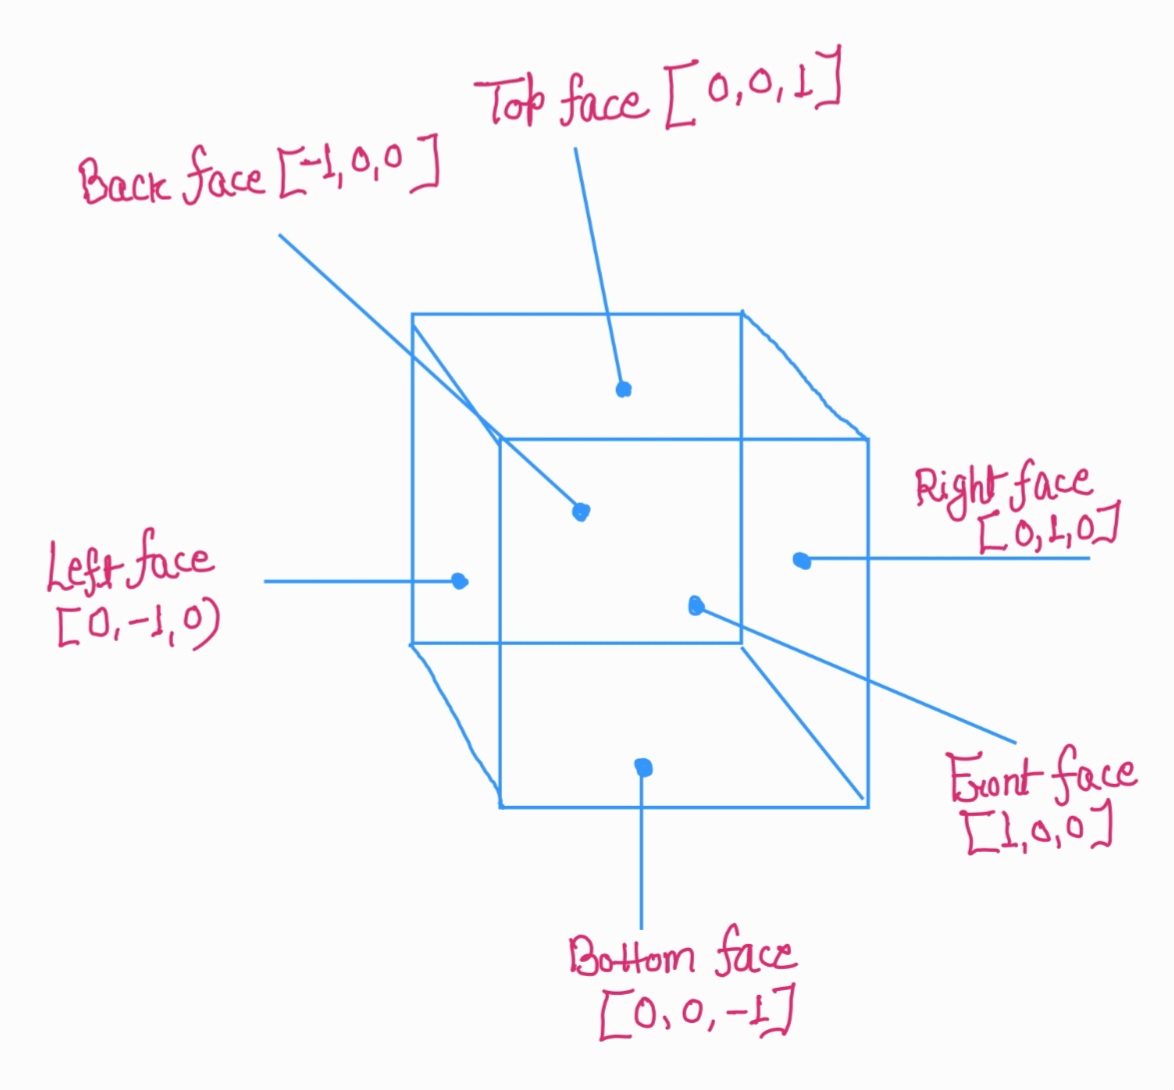 Top face [0,0,1]
Back face [-1,0,0]
Right face
[0,1,0]
Left face
[0,-1,0)
Front face
[1,0,0]
Bottom face
[0,0,-1]